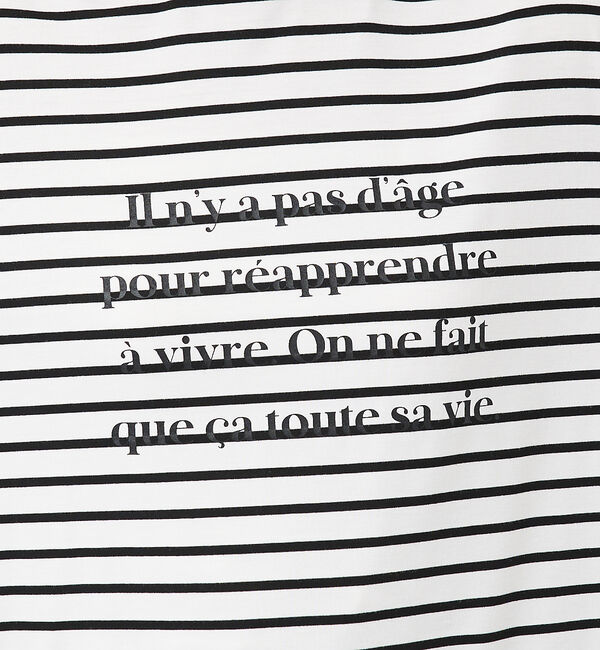 Il n'y a pas d'âge
pour réapprendre
à vivre. On ne fait
que ça toute sa vie.